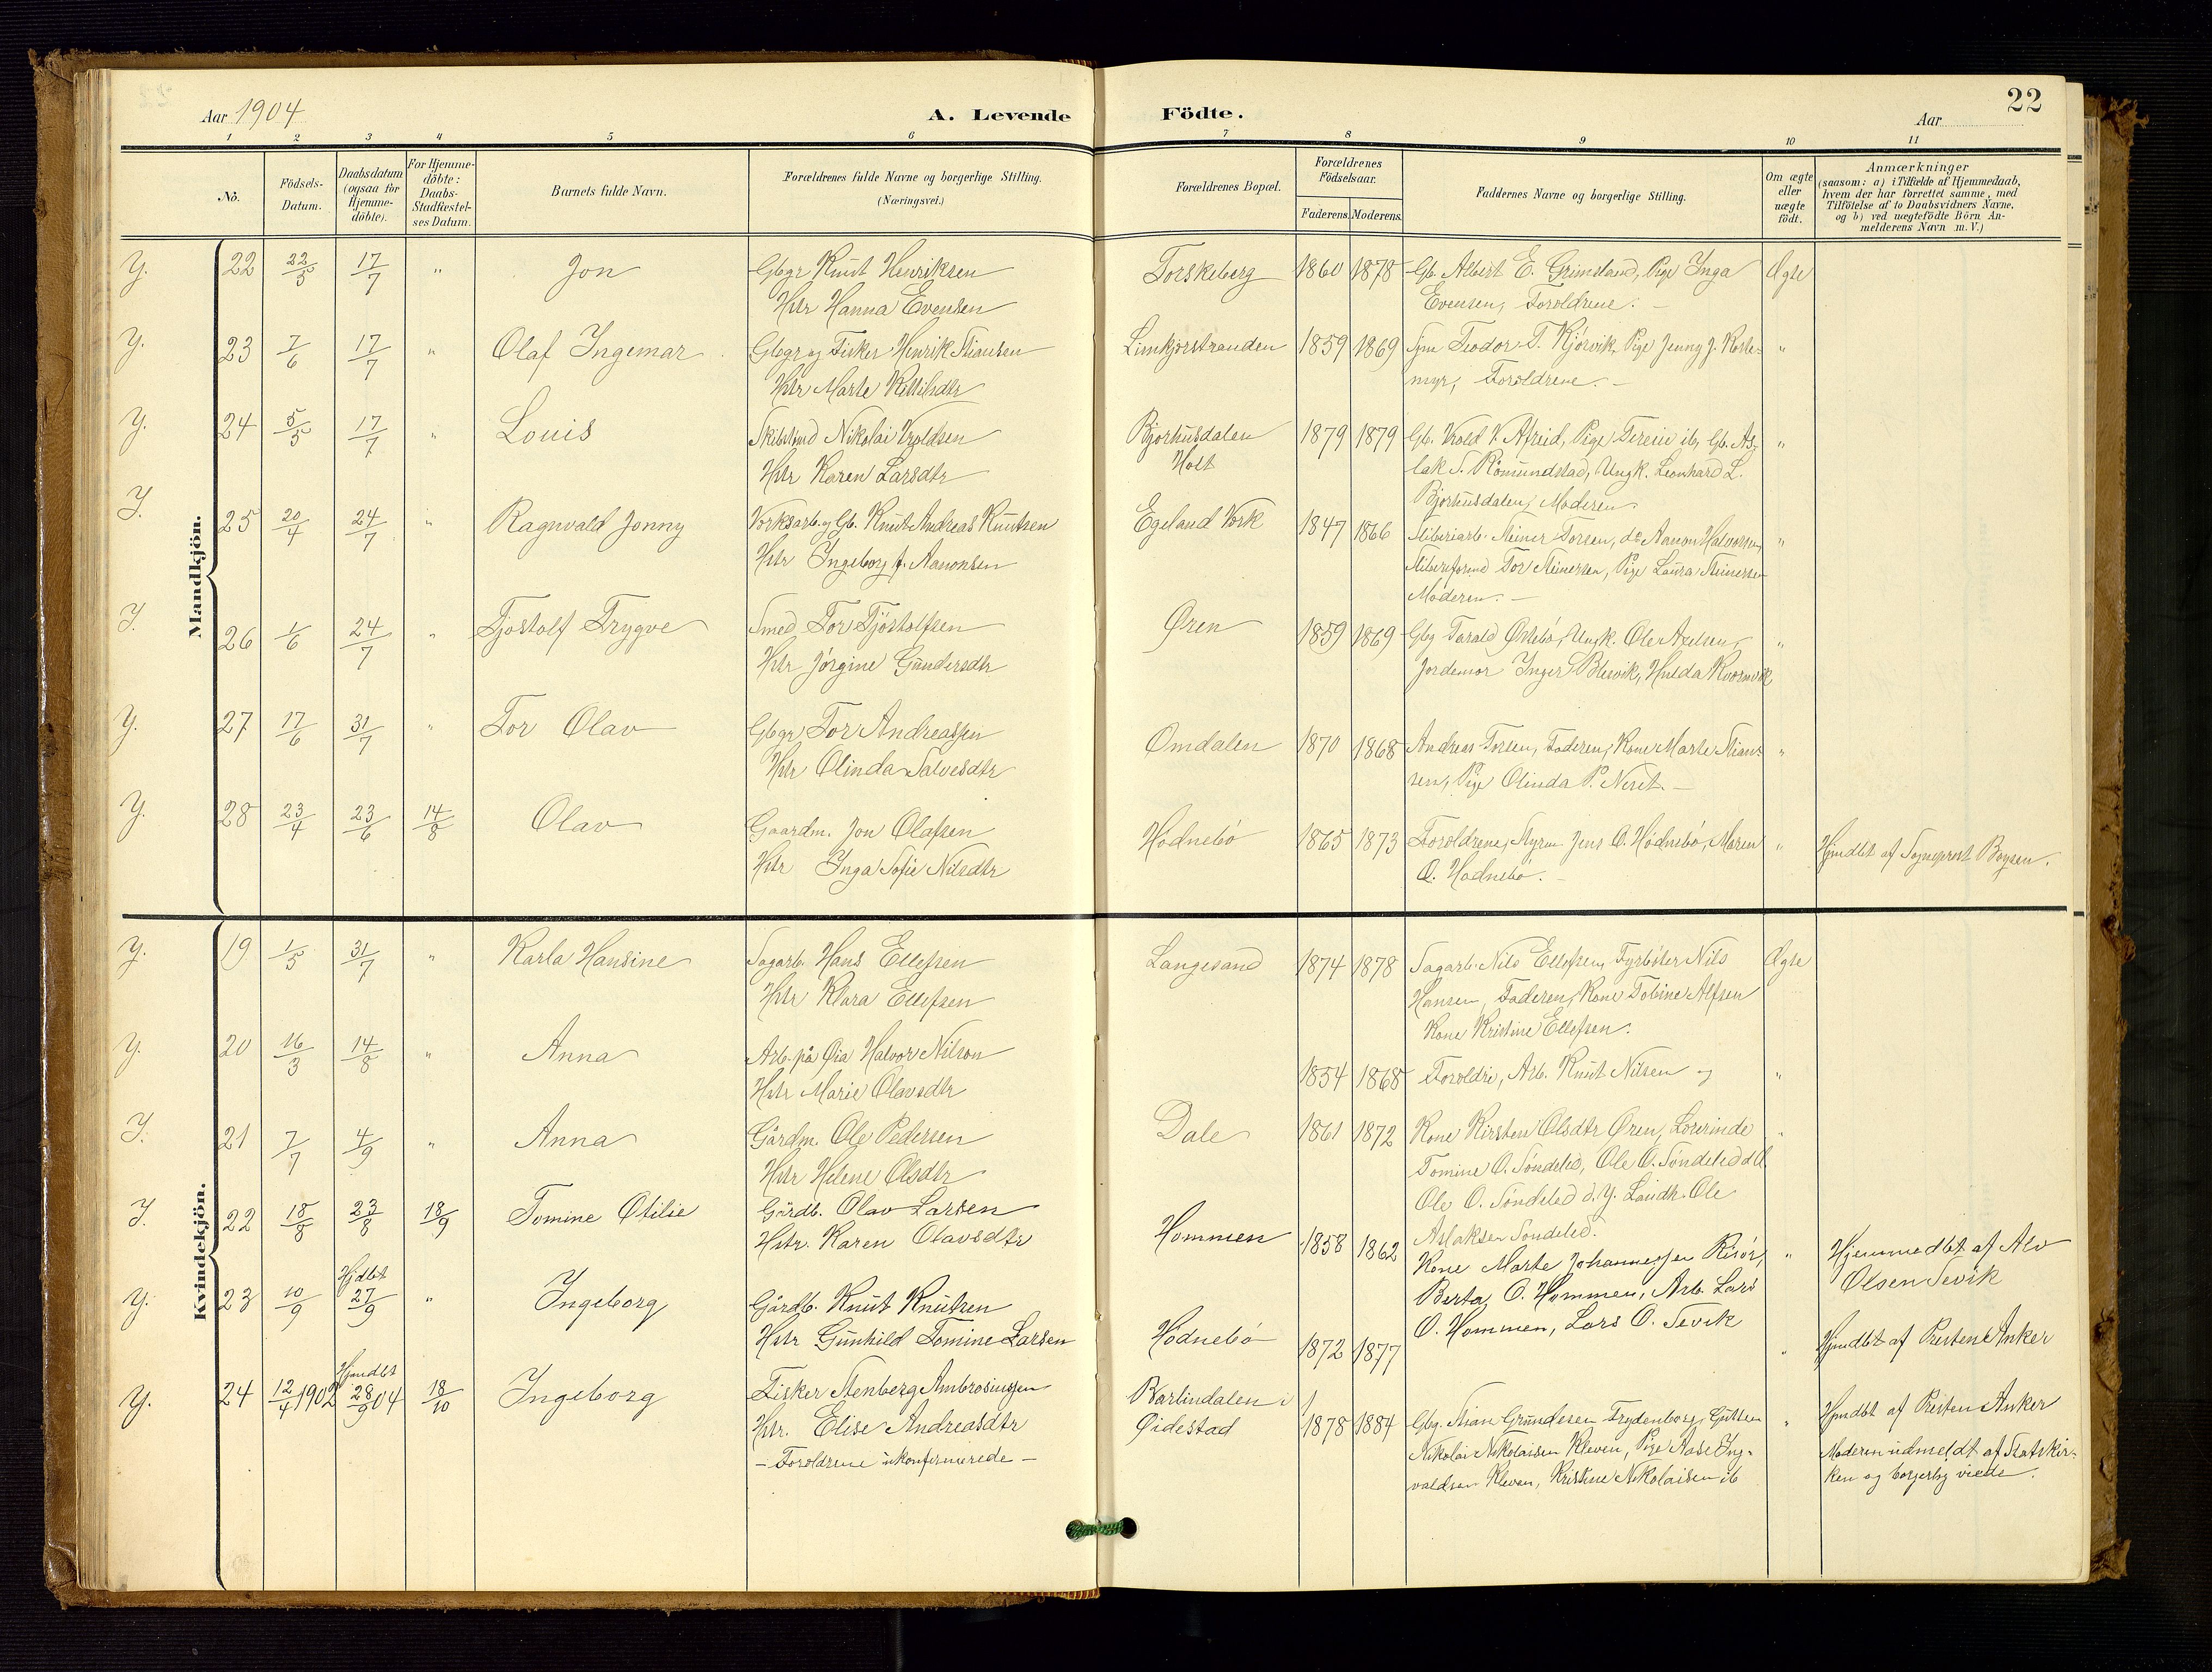 22
Aar 1904
A. Levende Födte.
Aar
1 2 3 4 5 6 7 8 9 10 11
No.
Födsels-
Datum.
Daabsdatum
(ogsaa för
Hjemme-
döbte).
For Hjemme-
döbte:
Daabs-
Stadfæstel-
ses Datum.
Barnets fulde Navn.
Forældrenes fulde Navne og borgerlige Stilling.
(Næringsvei.)
Forældrenes Bopæl.
Forældrenes
Födselsaar.
Faderens. Moderens.
Faddernes Navne og borgerlige Stilling.
Om ægte
eller
uægte
födt.
Anmærkninger
(saasom: a) i Tilfælde af Hjemmedaab,
hvem der har forrettet samme, med
Tilföielse af to Daabsvidners Navne,
og b) ved uægtefödte Börn An-
melderens Navn m. V.)
Mandkjön.
Y. 22 22/5 17/7 " Jon Gbgr Knut Henriksen Torskeberg 1860 1878 Gb. Albert E. Grimsland, Pige Inga Ægte
Hstr Hanna Evensen Evensen, Foræld­rene. —
Y. 23 7/6 17/7 " Olaf Ingemar Gbgr og Fisker Henrik Stiansen Limkjærstranden 1859 1869 Teodor T. Kjørvik, Pige Jenny J. "
Hstr Marte Kittilsdtr myr, Forældrene. —
Y. 24 5/5 17/7 " Louis Nikolai Vroldsen Bjorhusdalen 1879 1879 Gb. Vrold V. Pige ib, Gb. As- "
Hstr Karen Larsdtr Holt lak S. Romundstad, Ungk. Leonhard L.
Bjorhusdalen, Moderen.
Y. 25 20/4 24/7 " Ragnvald Jonny Værksarb. og Gb. Knut Andreas Knutsen Egeland Værk 1847 1866 Steiner Torsen, do Aanon Halvorsen, "
Hstr Ingeborg f. Aanonsen Tor Steinersen, Pige Laura Steinersen
Moderen. —
Y. 26 1/6 24/7 " Tjøstolf Trygve Smed Tor Tjøstolfsen Øren 1859 1869 Gbg Tarald Østebø, Ungk. Ole Axelsen, "
Hstr Jørgine Gundersdtr Jordemor Inger Blesvik, Hulda Kværnvik
Y. 27 17/6 31/7 " Tor Olav Gbgr Tor Andreassen Omdalen 1870 1868 Andreas Torsen, Faderen, Kone Marte Stian- "
Hstr Olinda Salvesdtr sen, Pige Olinda P. —
Y. 28 23/4 23/6 14/8 Olav Gaardm. Jon Olafsen Hødnebø 1865 1873 Forældrene, Styrm Jens O. Hødnebø, Maren " Hjmdbt af Sogneprest Boysen.
Hstr Inga Sofie Nilsdtr O. Hødnebø. —
Kvindekjön.
Y. 19 1/5 31/7 " Karla Hansine Sagarb. Hans Ellefsen Langesand 1874 1878 Sagarb. Nils Ellefsen, Fyrbøter Nils Ægte
Hstr Klara Ellefsen Hansen, Faderen, Kone Tobine Alfsen
Kone Kristine Ellefsen.
Y. 20 16/3 14/8 " Anna Arb. på Øia Halvor Nilson 1854 1868 Forældre, Arb. Knut Nilsen og "
Hstr Marie Olavsdtr
Y. 21 7/7 4/9 " Anna Gårdm. Ole Pedersen Dale 1861 1872 Kone Kirsten Olsdtr Øren, Lærerinde "
Hstr Helene Olsdtr Tomine O. Søndeled, Ole O. Søndeled d.Æ.
Ole O. Søndeled d. Y. Landh. Ole
Aslaksen Søndeled.
Y. 22 18/8 23/8 18/9 Tomine Otilie Gårdb. Olav Larsen Hommen 1858 1862 Kone Marte Johannessen Risør, " Hjemmedbt af Alv
Hstr. Karen Olavsdtr Berta O. Hommen, Arb. Lars Olsen Sevik
O. Hommen, Lars O. Sevik
Y. 23 10/9 Hjdbt 27/9 " Ingeborg Gårdb. Knut Knutsen Hødnebø 1872 1877 " Hjmdbt af Presten Anker
Hstr Gunhild Tomine Larsen
Y. 24 12/4 1902 Hjmdbt 28/9 04 18/10 Ingeborg Fisker Stenberg Ambrosiussen Barlindalen i 1878 1884 Gbg. Stian Gundersen Frydenborg, Gutten " Hjmdbt af Presten Anker
Hstr. Elise Andreasdtr Øidestad Nikolai Nikolaisen Kleven, Pige Aase Ing- Moderen udmeldt af Statskir-
— Forældrene ukonfirmerede — valdsen Kleven, Kristine Nikolaisen ib ken og borgerlig viede.